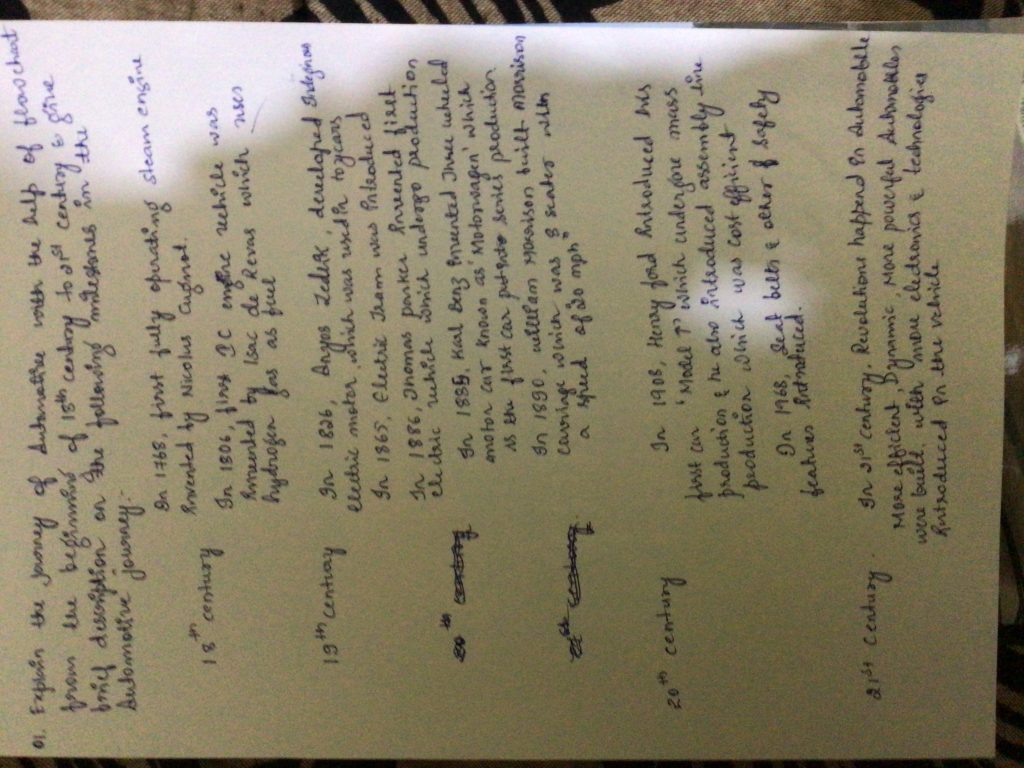 01. Explain the journey of Automative with the help of flowchart
from the beginning of 18th century to 21st century & give
brief description on the following milestones in the
Automotive journey:-
18th century
In 1768, first fully operating steam engine
invented by Nicolus Cugnot.
In 1806, first IC engine vehicle was
invented by Isac de Revas which uses
hydrogen gas as fuel
19th century
In 1826, Anyos Jedlik, developed
electric motor, which was used in toycars
In 1865, Electric Tram was introduced
In 1886, Thomas parker invented first
electric vehicle which undergo production
20th century
In 1885, Karl Benz invented three wheeled
motor car known as 'Motorwagen' which
is the first car put into series production
21st century
In 1890, william Morrison built Morrison
carriage which was 8 seater with
a speed of 20 mph"
20th century
In 1908, Henry ford introduced his
first car 'Model T' which undergone mass
production & he also introduced assembly line
production which was cost efficient
In 1968, seat belts & other safety
features introduced.
21st century.
In 21st century, Revolutions happend in Automobile
More efficient, Dynamic, More powerful Automobiles
were built with more electronics & technologies
introduced in the vehicle